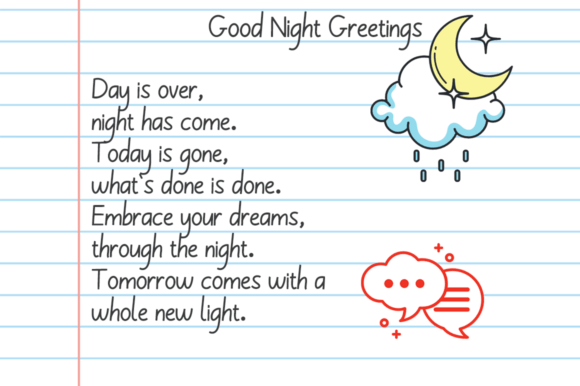 Good Night Greetings
Day is over,
night has come.
Today is gone,
what's done is done.
Embrace your dreams,
through the night.
Tomorrow comes with a
whole new light.